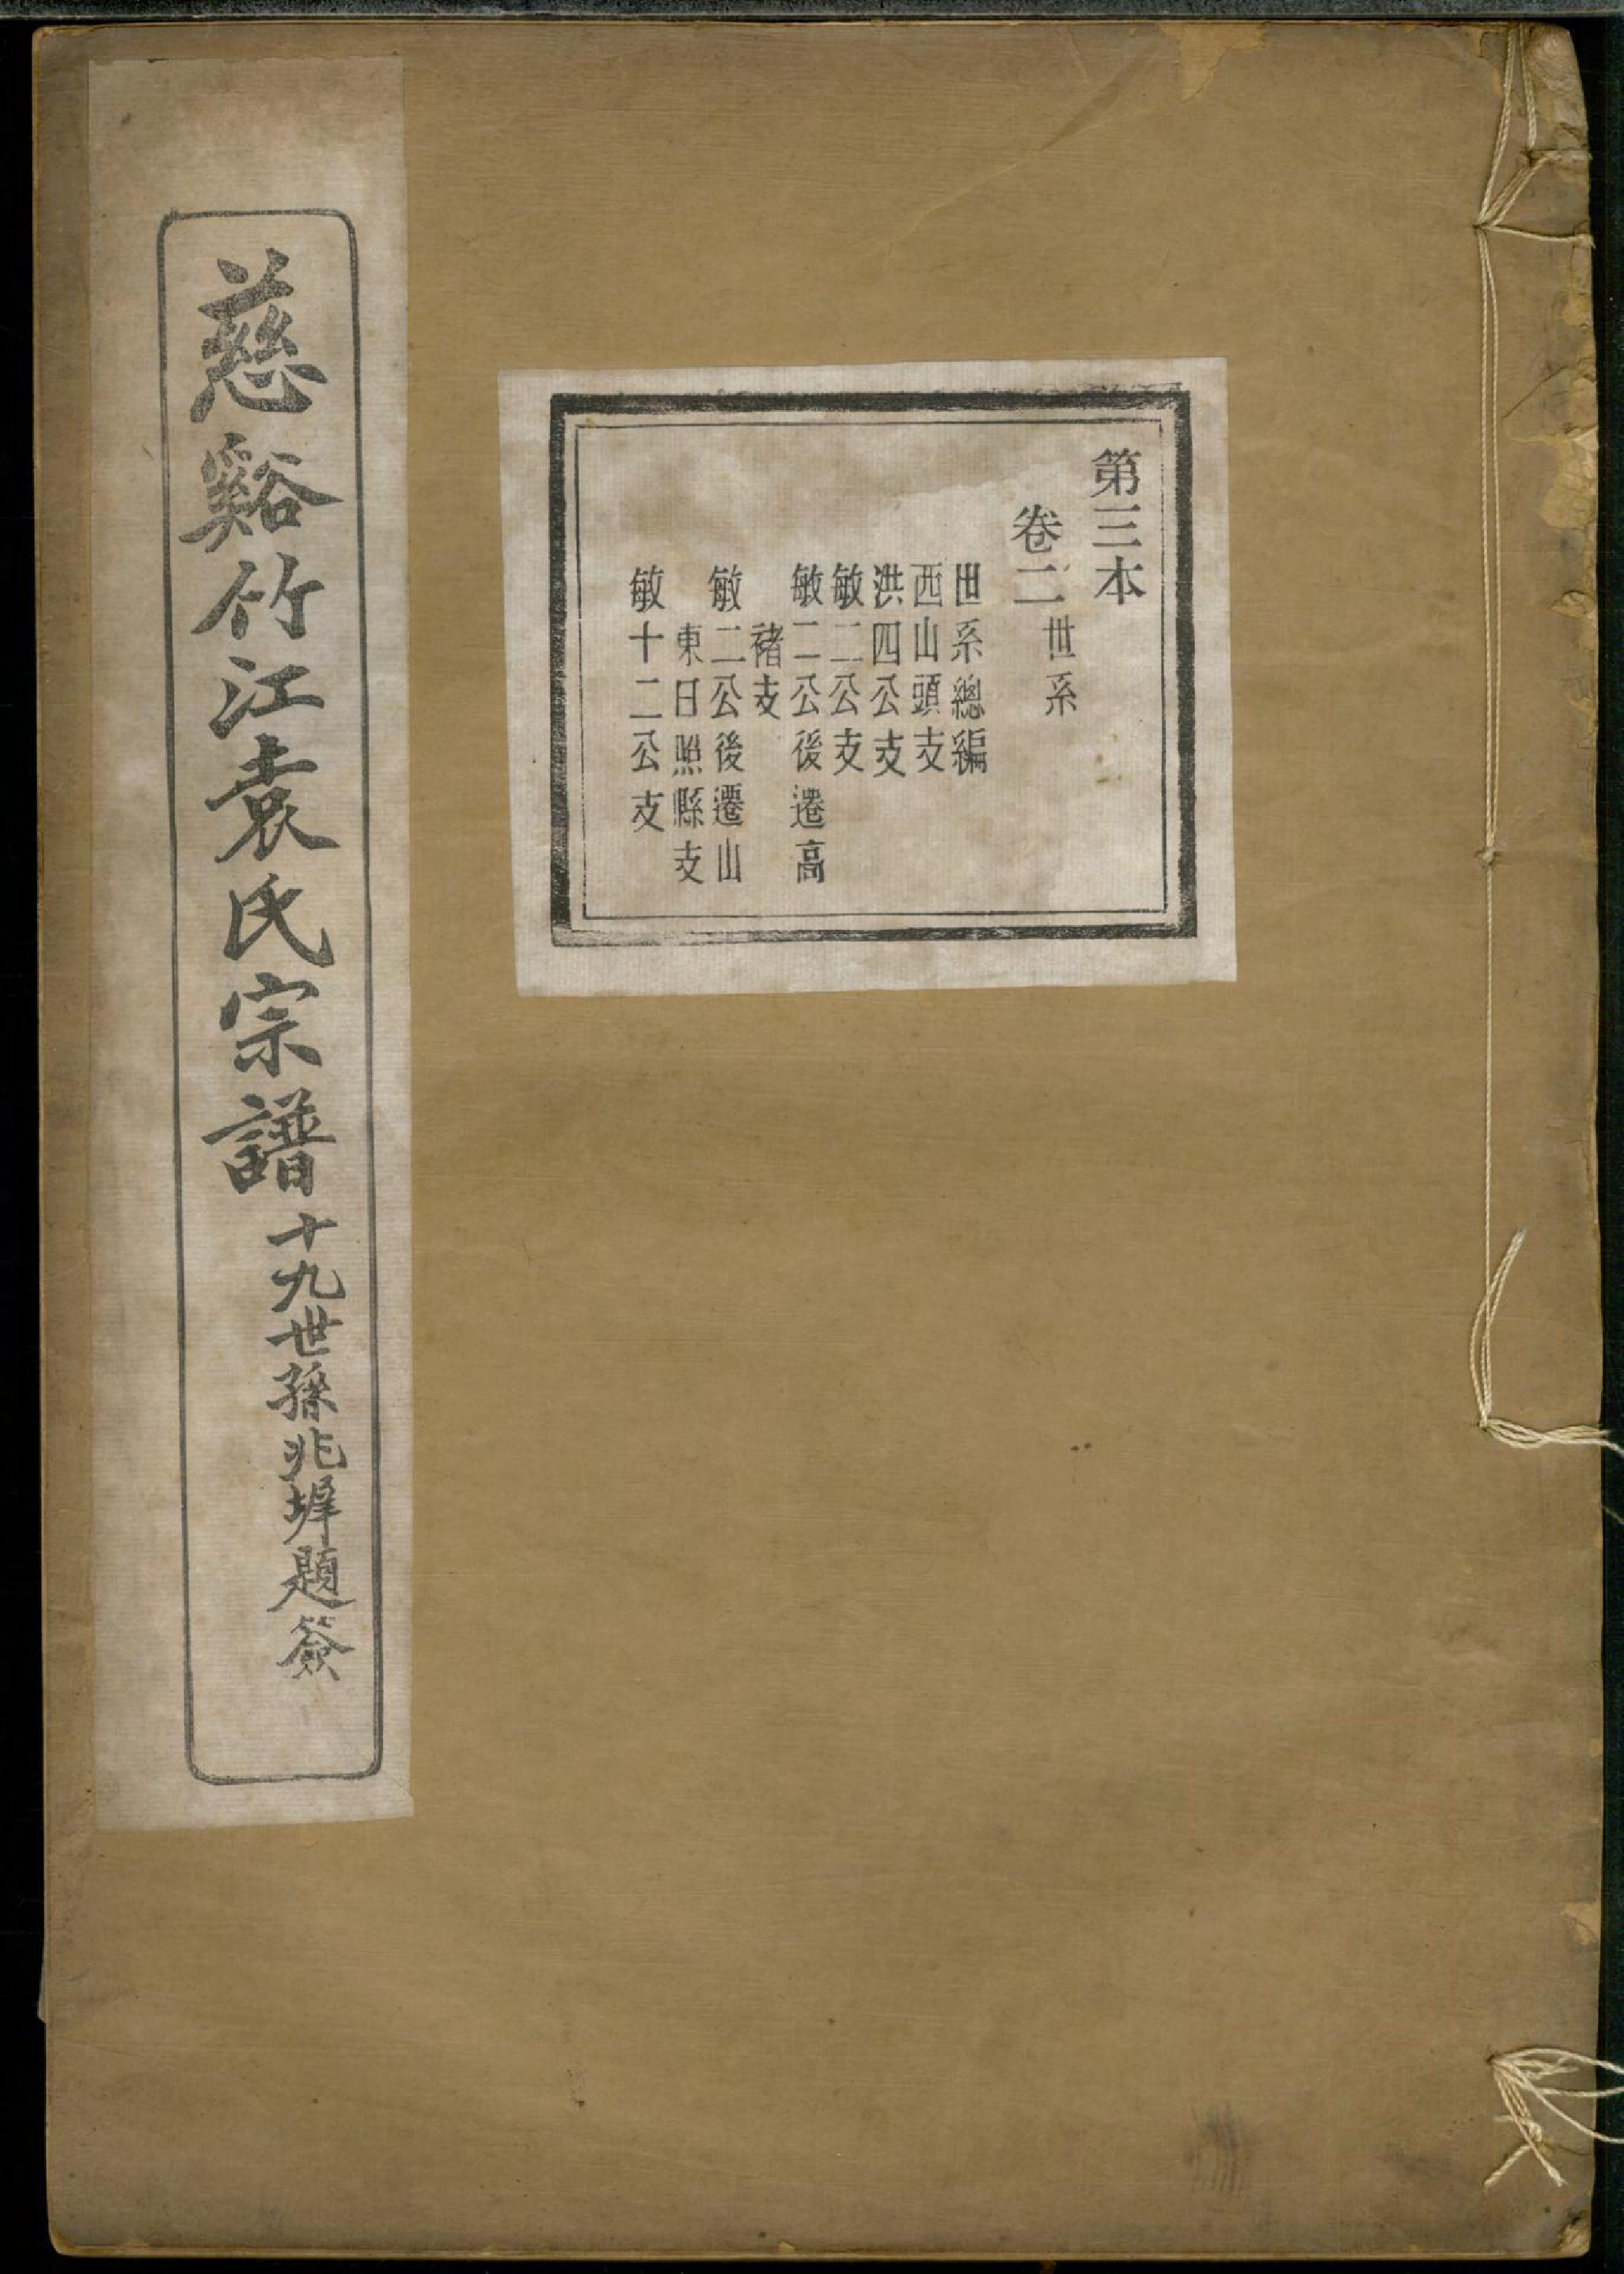 第三本
卷二世系
世系總編
西山頭支
洪四公支
敏二公支
敏二公後遷高
褚支
敏二公後遷山
東日照縣支
敏十二公支
慈谿竹江袁氏宗譜
十九世孫兆墀題簽